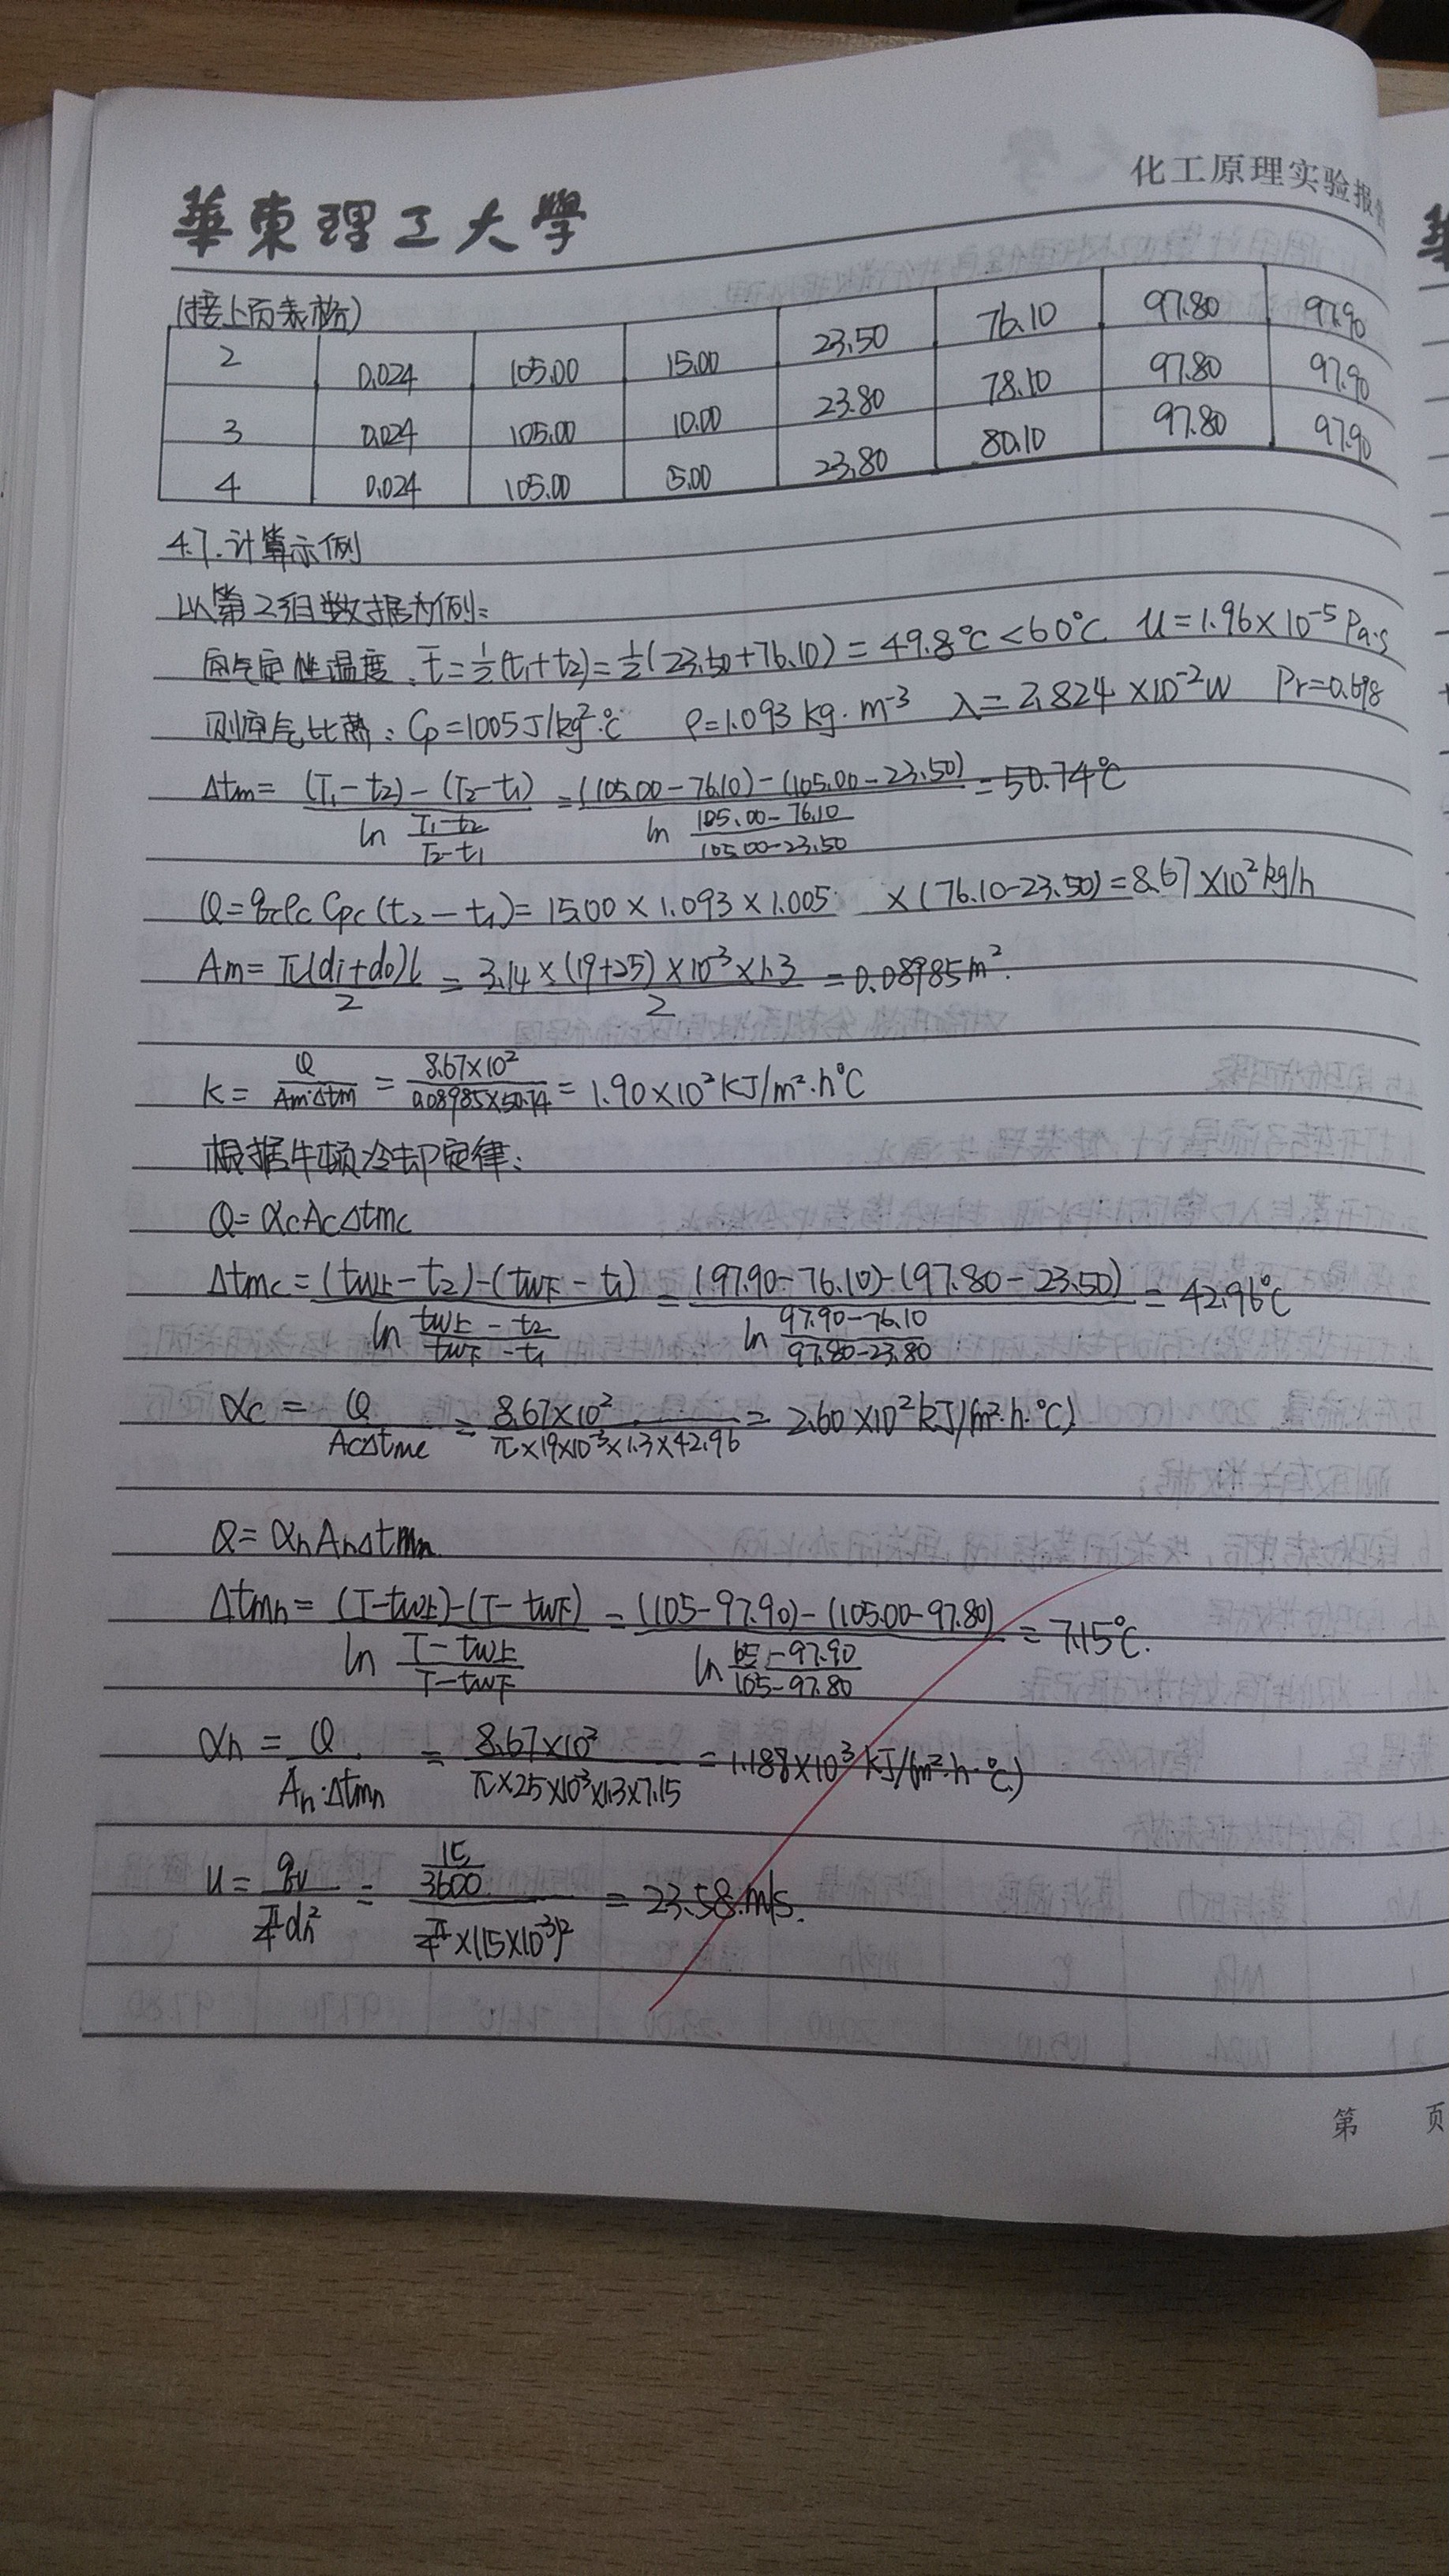 化工原理实验报告
華東理工大學
(接上页表格)
2 0.024 105.00 15.00 23.50 76.10 97.80 97.90
3 0.024 105.00 10.00 23.80 78.10 97.80 97.90
4 0.024 105.00 5.00 23.80 80.10 97.80 97.90
4.7.计算示例
以第2组数据为例:
空气定性温度: t̄=½(t₁+t₂)=½(23.50+76.10)=49.8℃<60℃ μ=1.96×10⁻⁵Pa·s
则空气比热: Cp=1005J/kg²·℃ ρ=1.093kg·m⁻³ λ=2.824×10⁻²W Pr=0.698
Δtm= ((T₁-t₂)-(T₂-t₁))/(ln (T₁-t₂)/(T₂-t₁)) = ((105.00-76.10)-(105.00-23.50))/(ln (105.00-76.10)/(105.00-23.50)) =50.74℃
Q=qvcρcCpc(t₂-t₁)=15.00×1.093×1.005 ×(76.10-23.50)=8.67×10²kg/h
Am= π(di+do)l/2 = 3.14×(19+25)×10⁻³×1.3/2 =0.08985m².
K= Q/(Am·Δtm) = 8.67×10²/(0.08985×50.74) =1.90×10²KJ/m²·h℃
根据牛顿冷却定律:
Q=αcAcΔtmc
Δtmc= ((tw上-t₂)-(tw下-t₁))/(ln (tw上-t₂)/(tw下-t₁)) = ((97.90-76.10)-(97.80-23.50))/(ln (97.90-76.10)/(97.80-23.80)) =42.96℃
αc = Q/(AcΔtmc) = 8.67×10²/(π×19×10⁻³×1.3×42.96) = 2.60×10²kJ/(m²·h·℃)
Q=αhAhΔtmh
Δtmh= ((T-tw上)-(T-tw下))/(ln (T-tw上)/(T-tw下)) = ((105-97.90)-(105.00-97.80))/(ln (105-97.90)/(105-97.80)) =7.15℃.
αh = Q/(Ah·Δtmh) = 8.67×10²/(π×25×10⁻³×1.3×7.15) =1.188×10³kJ/(m²·h·℃)
u= qv/(π/4 dh²) = (15/3600)/(π/4×(15×10⁻³)²) =23.58m/s.
第 页